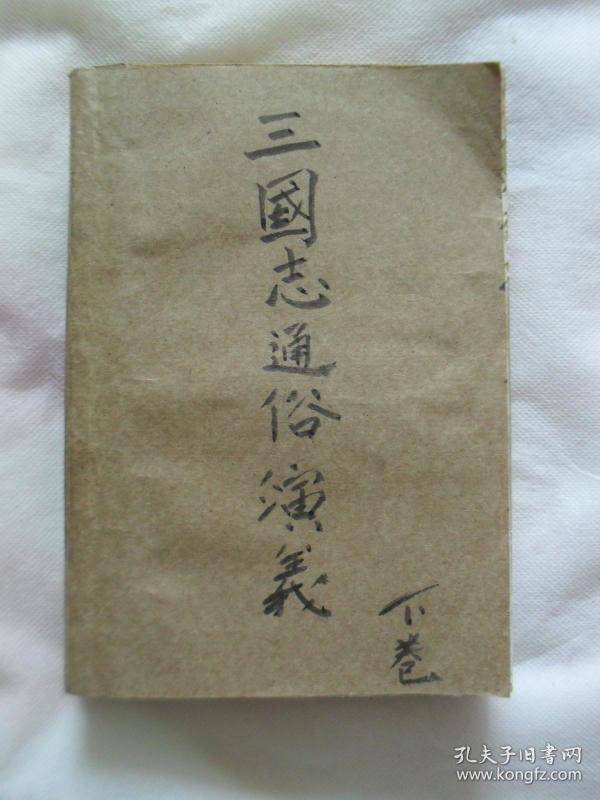 三國志通俗演義
下卷
孔夫子旧書网
www.kongfz.com